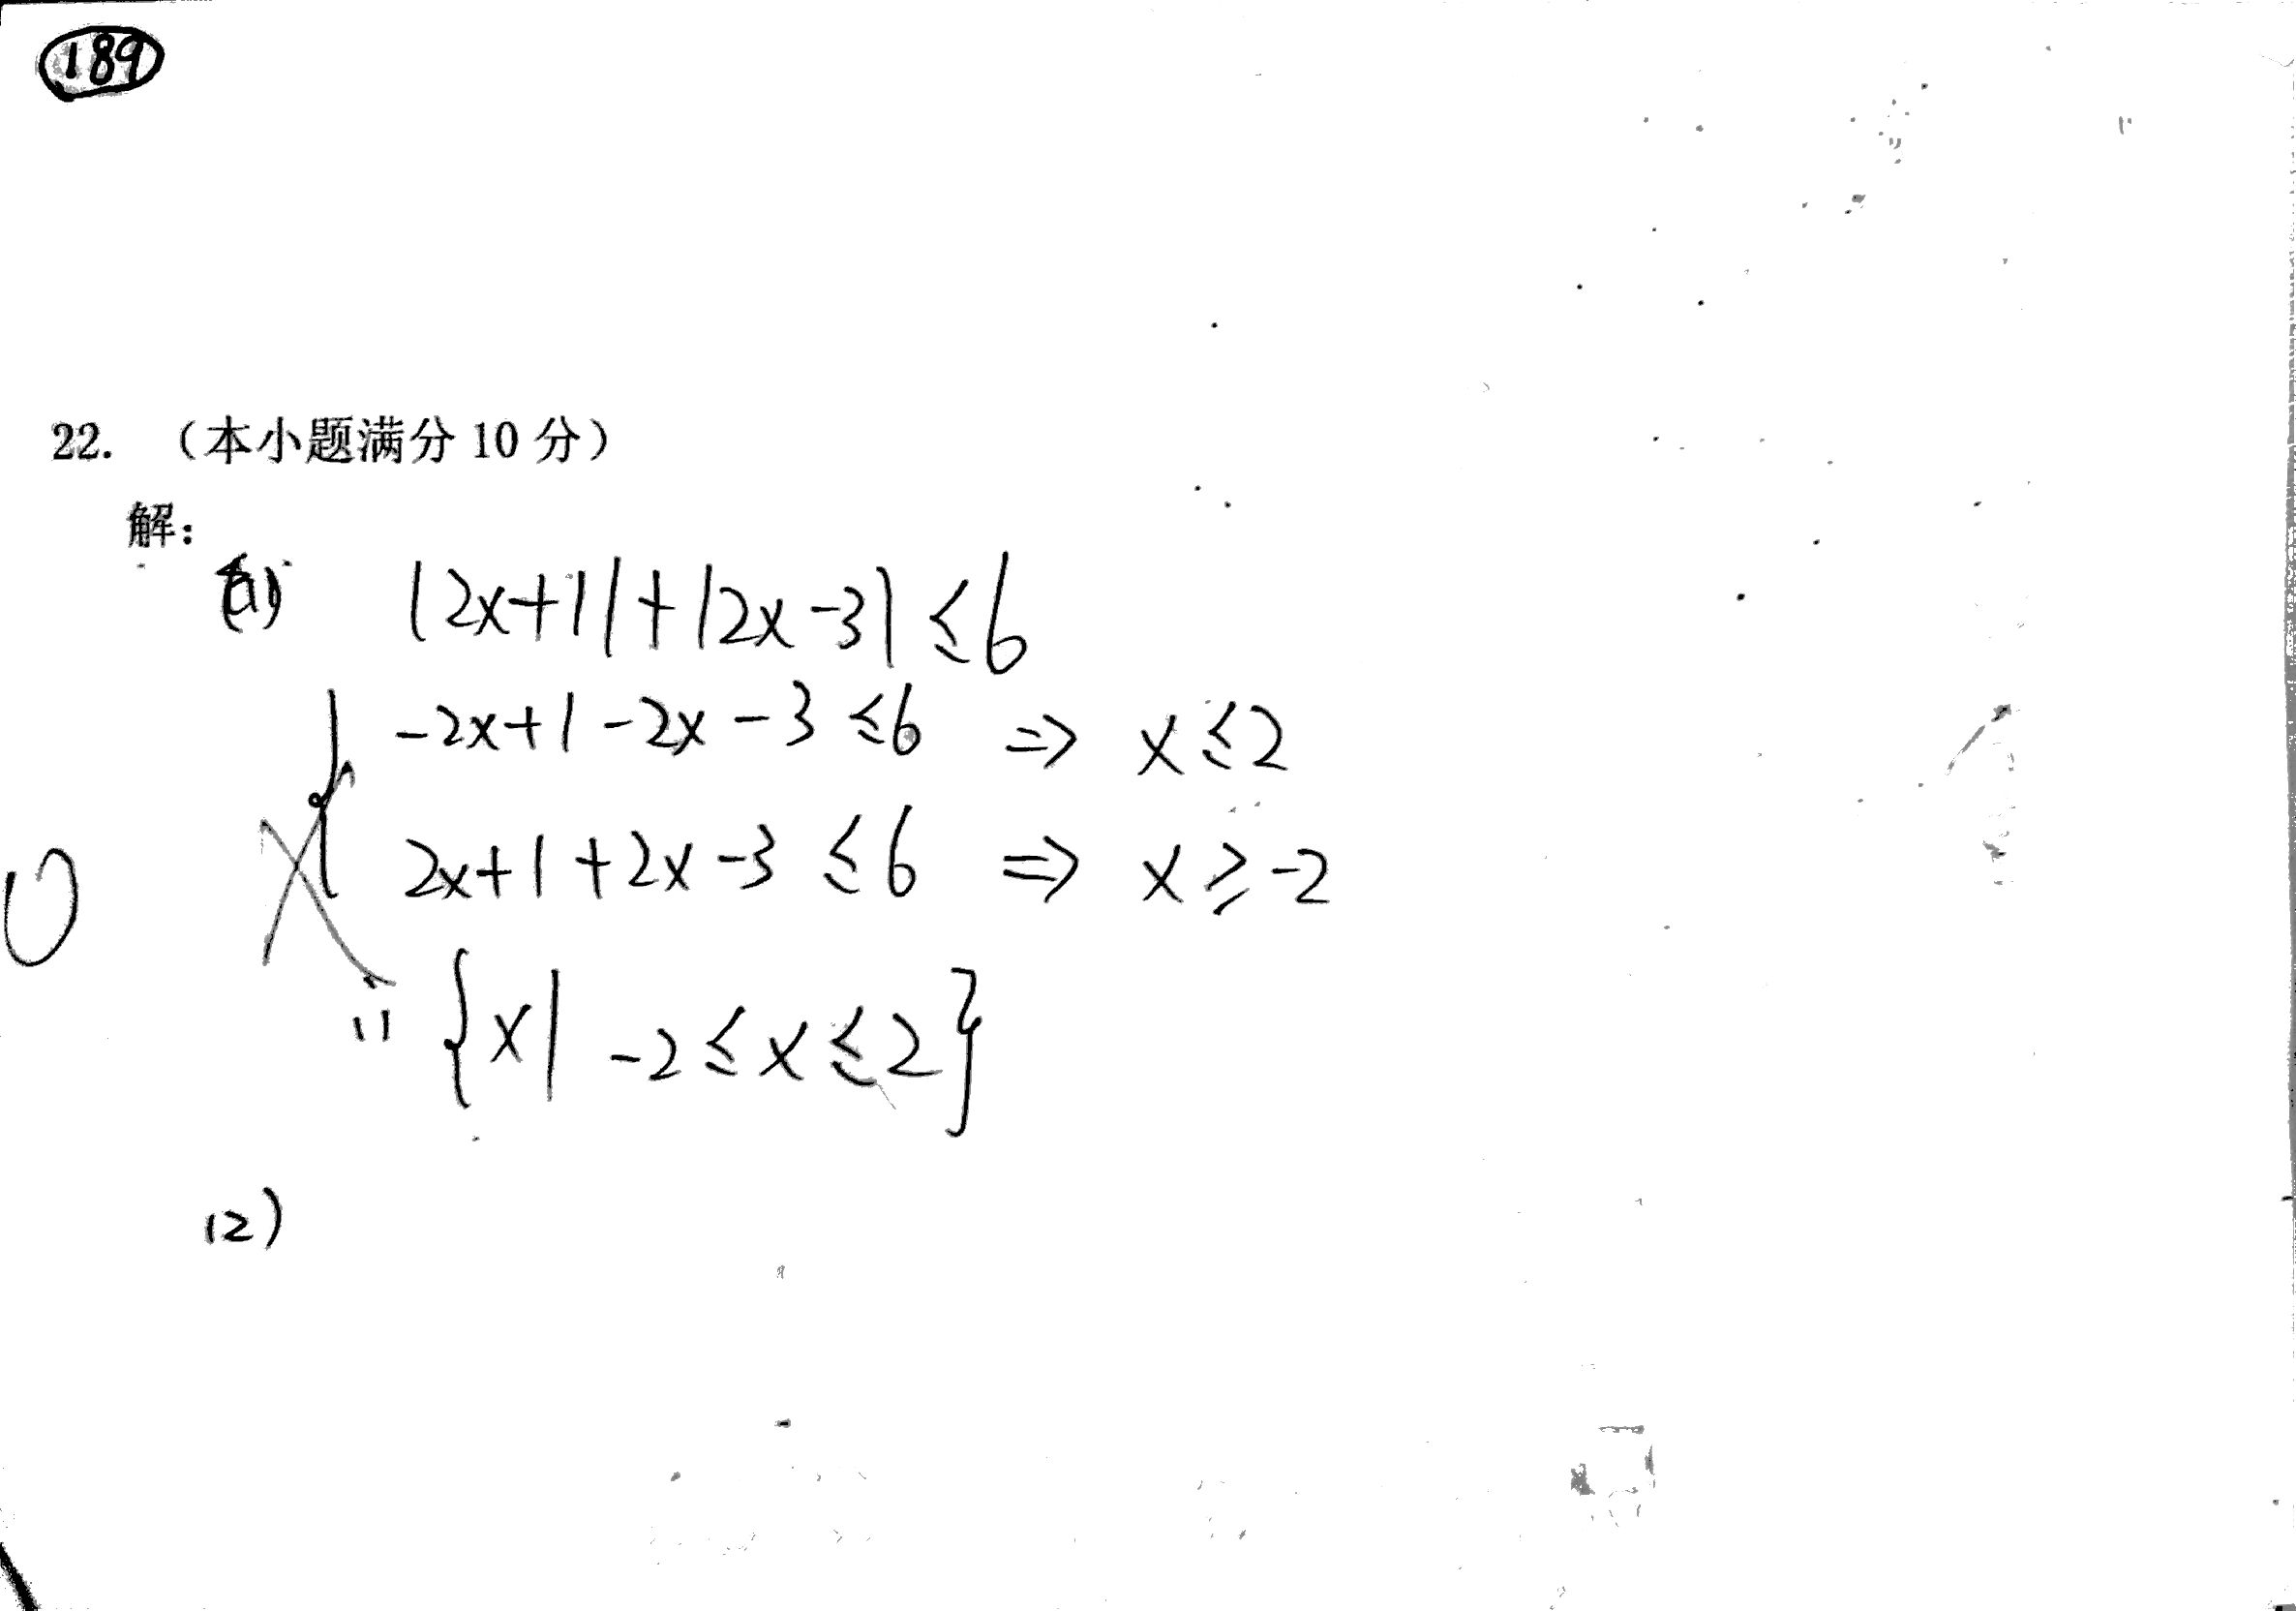 189
22. （本小题满分 10 分）
解：
(1) |2x+1|+|2x-3|≤6
-2x+1-2x-3≤6 ⇒ x≤2
2x+1+2x-3≤6 ⇒ x≥-2
0
∴ {x|-2≤x≤2}
(2)